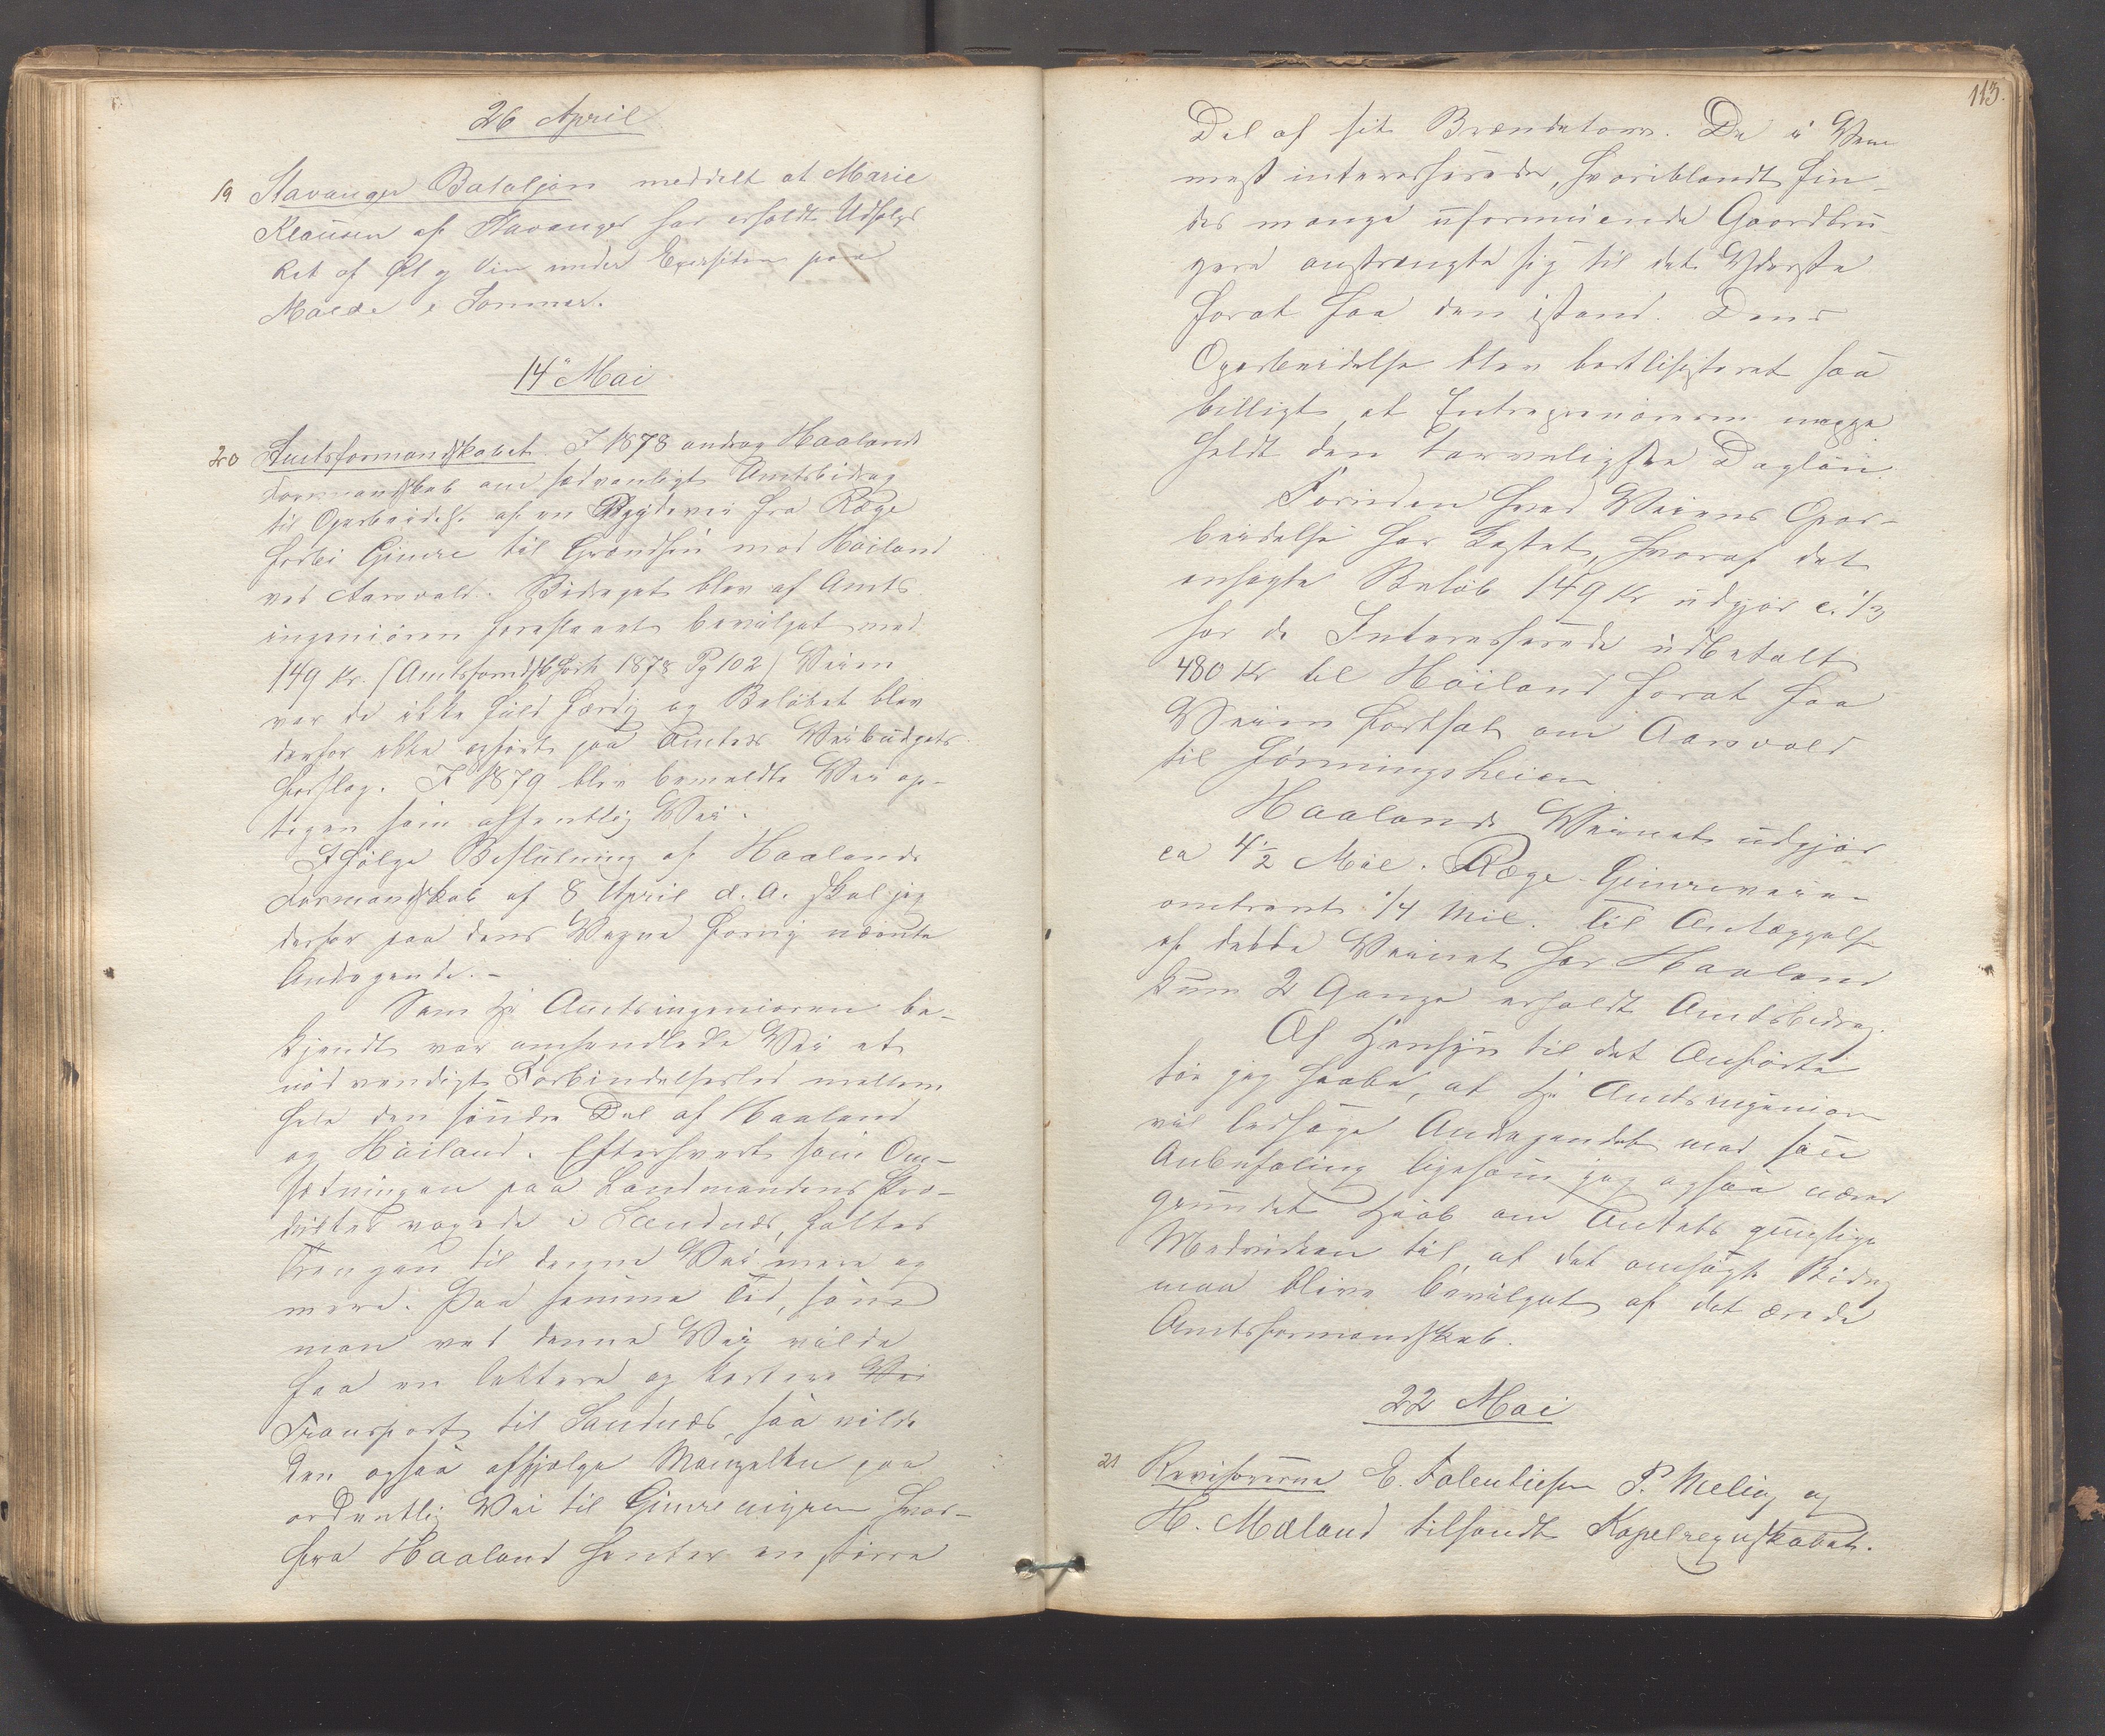 26 April
19 Stavanger Bataljon meddelt at Marie
Klausen af Stavanger har erholdt Udsalgs
Ret af Øl og Vin under Exersitien paa
Malde i Sommer.
14 Mai
20 Amtsformandskabet. I 1878 androg Haalands
Formandskab om sædvanligt Amtsbidrag
til Oparbeidelse af en Bygdevei fra Ræge
forbi Gimre til Grændsen mod Høiland
ved Aarsvold. Bidraget blev af Amts
ingeniøren foreslaaet bevilget med
149 Kr. (Amtsformdskb Forh 1878 Pg 102) Veien
var da ikke fuld færdig og Beløbet blev
derfor ikke opført paa Amtets Veibudgets
forslag. I 1879 blev bemeldte Vei op-
tagen som offentlig Vei.
Ifølge Beslutning af Haalands
Formandskab af 8 April d. A. skal jeg
derfor paa dens Vegne forny nævnte
Andragende.-
Som Hr Amtsingeniøren be-
kjendt var omhandlede Vei et
nødvendigt Forbindelsesled mellem
hele den søndre Del af Haaland
og Høiland. Efterhvert som Om-
sætningen paa Landmandens Pro-
dukter voxede i Sandnæs, føltes
Trangen til denne Vei mere og
mere. Paa samme Tid, som
man ved denne Vei vilde
faa en lettere og kortere Vei
Transport til Sandnæs, saa vilde
den ogsaa afhjælpe Mangelen paa
ordentlig Vei til Gimremyren hvor-
fra Haaland henter en større
113.
Del af sit Brændetorv. De i Veien
mest interesserede, hvoriblandt fin-
des mange uformuende Gaardbru-
gere anstrængte sig til det Yderste
forat faa den istand. Dens
Oparbeidelse blev bortlisiteret saa
billigt, at Entreprenørerne neppe
holdt den tarveligste Dagløn.
Foruden hvad Veiens Opar-
beidelse har kostet, hvoraf det
ansøgte Beløb 149 Kr udgjør c. 1/3
har de Interesserede udbetalt
480 Kr til Høiland forat faa
Veien fortsat om Aarsvold
til
Haalands Veinet udgjør
ca 4 1/2 Mil. Ræge-Gimreveien
omtrent 1/4 Mil. Til Anlæggelse
af dette Veinet har Haaland
kun 2 Gange erholdt Amtsbidrag.
Af Hensyn til det Anførte
tør jeg haabe, at Hr Amtsingeniøren
vil ledsage Andragendet med sin
Anbefaling ligesom jeg ogsaa nærer
grundet Haab om Amtets gunstige
Medvirken til, at det ansøgte Bidrag
maa blive bevilget af det ærede
Amtsformandskab.
22 Mai
21 Revisorerne E. Tolentiesen P. Meling og
H. Mæland tilsendt Kapelregnskabet.